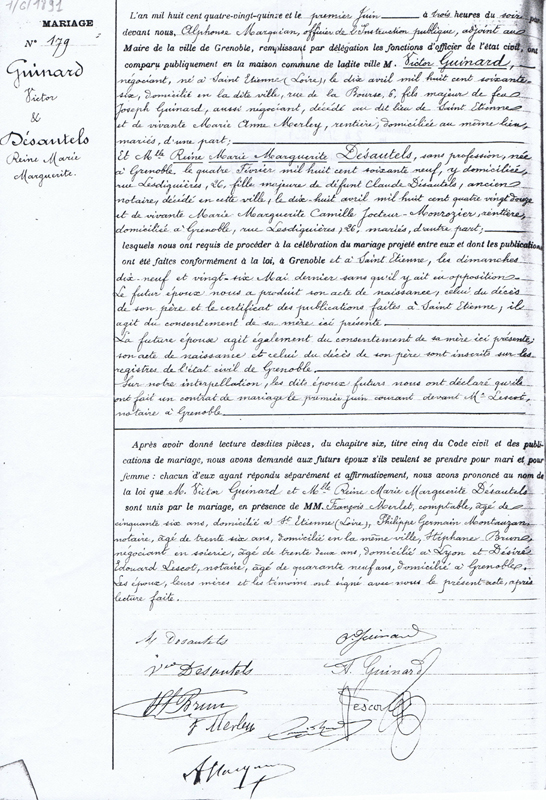 MARIAGE
N° 179
Guinard
Victor
&
Désautels
Reine Marie
Marguerite.
L'an mil huit cent quatre-vingt-quinze et le premier Juin à trois heures du soir, par
devant nous, Alphonse officier de l'Instruction publique, adjoint au
Maire de la ville de Grenoble, remplissant par délégation les fonctions d'officier de l'état civil, ont
comparu publiquement en la maison commune de ladite ville M. Victor Guinard,
négociant, né à Saint Etienne (Loire), le dix avril mil huit cent soixante
six, domicilié en la dite ville, rue de la Bourse, 6, fils majeur de feu
Joseph Guinard, aussi négociant, décédé au dit lieu de Saint Etienne
et de vivante Marie Anne Merley, rentière, domiciliée au même lieu,
mariés, d'une part;
Et Mlle Reine Marie Marguerite Désautels, sans profession, née
à Grenoble, le quatre Février mil huit cent soixante neuf, y domiciliée,
rue Lesdiguières, 26, fille majeure de défunt Claude Désautels, ancien
notaire, décédé en cette ville, le dix-huit avril mil huit cent quatre vingt douze
et de vivante Marie Marguerite Camille Jocteur-Monrozier, rentière,
domiciliée à Grenoble, rue Lesdiguières, 26, mariés, d'autre part;
lesquels nous ont requis de procéder à la célébration du mariage projeté entre eux et dont les publications
ont été faites conformément à la loi, à Grenoble et à Saint Etienne, les dimanches
dix neuf et vingt-six Mai dernier sans qu'il y ait eu opposition.
Le futur époux nous a produit son acte de naissance, celui du décès
de son père et le certificat des publications faites à Saint Etienne, il
agit du consentement de sa mère ici présente.
La future épouse agit également du consentement de sa mère ici présente;
son acte de naissance et celui du décès de son père sont inscrits sur les
registres de l'état civil de Grenoble.
Sur notre interpellation, les dits époux futurs nous ont déclaré qu'ils
ont fait un contrat de mariage le premier Juin courant devant Me Lescot,
notaire à Grenoble.
Après avoir donné lecture desdites pièces, du chapitre six, titre cinq du Code civil et des publi-
cations de mariage, nous avons demandé aux futurs époux s'ils veulent se prendre pour mari et pour
femme : chacun d'eux ayant répondu séparément et affirmativement, nous avons prononcé au nom de
la loi que M. Victor Guinard et Mlle Reine Marie Marguerite Désautels
sont unis par le mariage, en présence de MM. François Merley, comptable, âgé de
cinquante six ans, domicilié à St Etienne (Loire), Philippe Germain Montauzan,
notaire, âgé de trente six ans, domicilié en la même ville, Stéphane Brun,
négociant en soierie, âgé de trente deux ans, domicilié à Lyon et Désiré
Edouard Lescot, notaire, âgé de quarante neuf ans, domicilié à Grenoble.
Les époux, leurs mères et les témoins ont signé avec nous le présent acte, après
lecture faite.
M Desautels
Guinard
Vve Desautels
Guinard
Brun
Lescot
F Merley